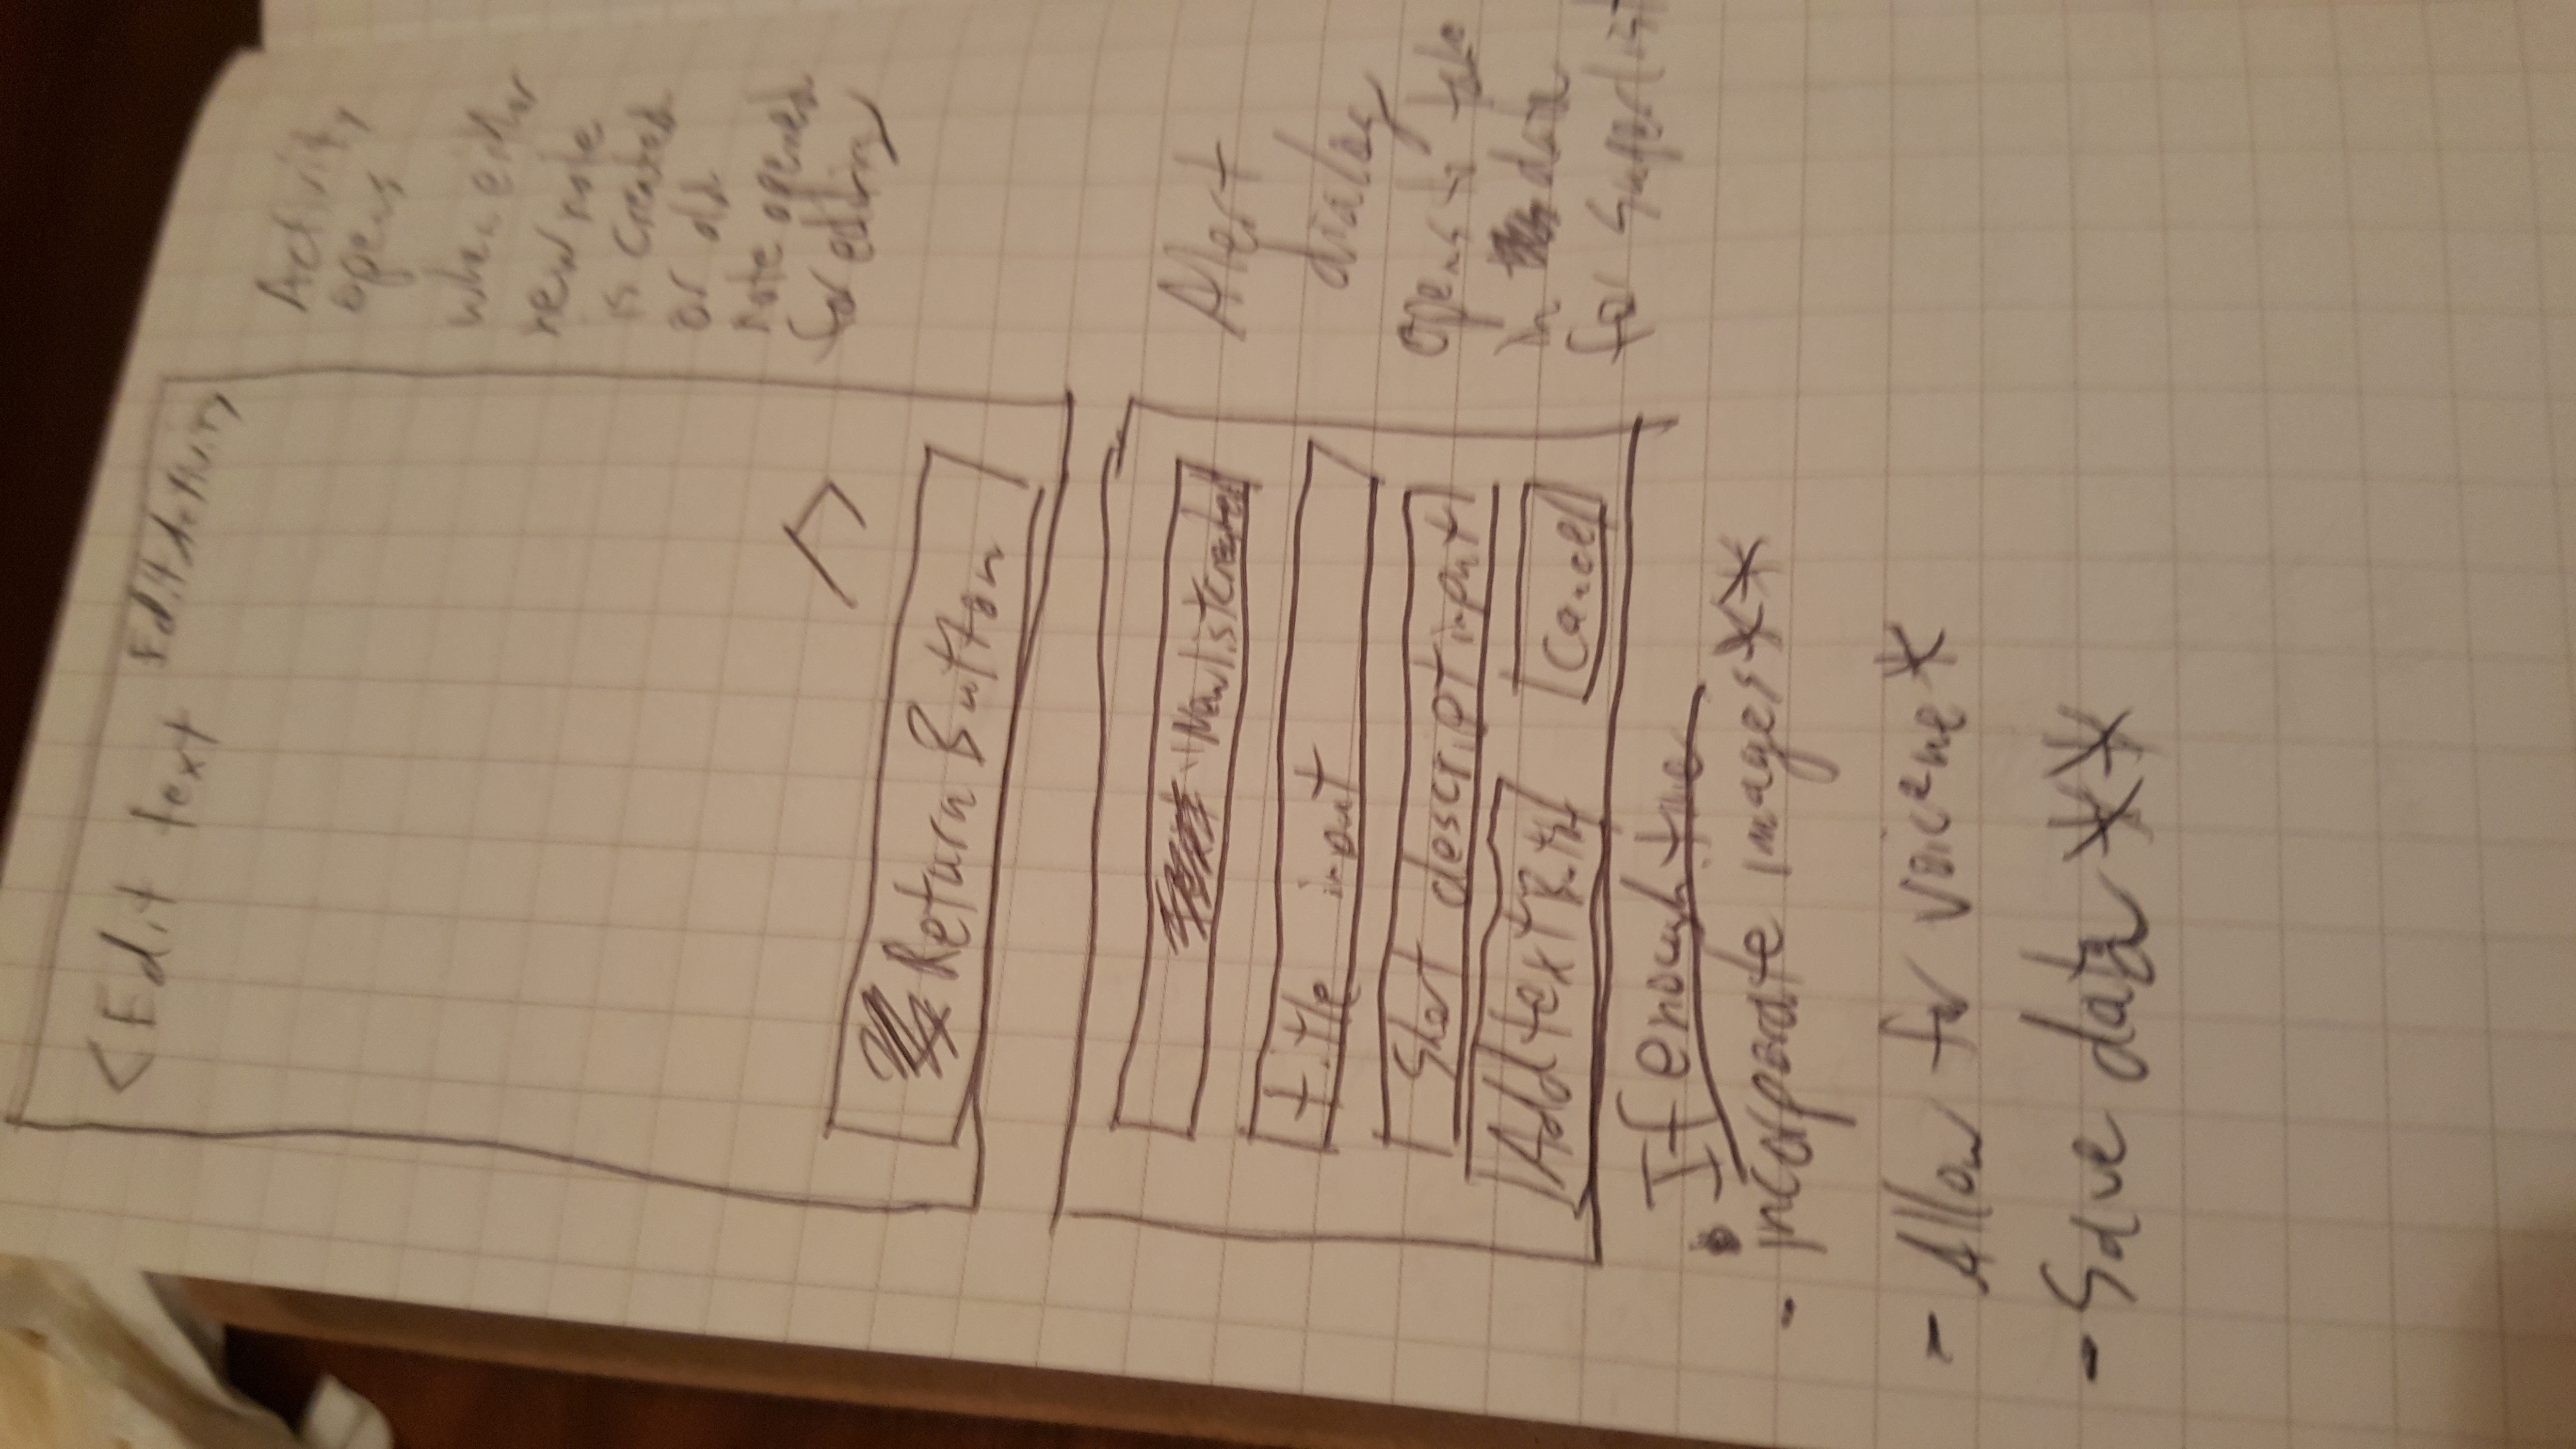 <Edit text EditActivity
Activity
opens
when either
new note
is created
or old
note opened
for editing
Return Button
"New list created
title input
Short descript input
Add text Buttn
Cancel
Alert
dialog
opens to take
in data
for Superlist
If enough time
- incorporate images**
- Allow for *
- Save data **